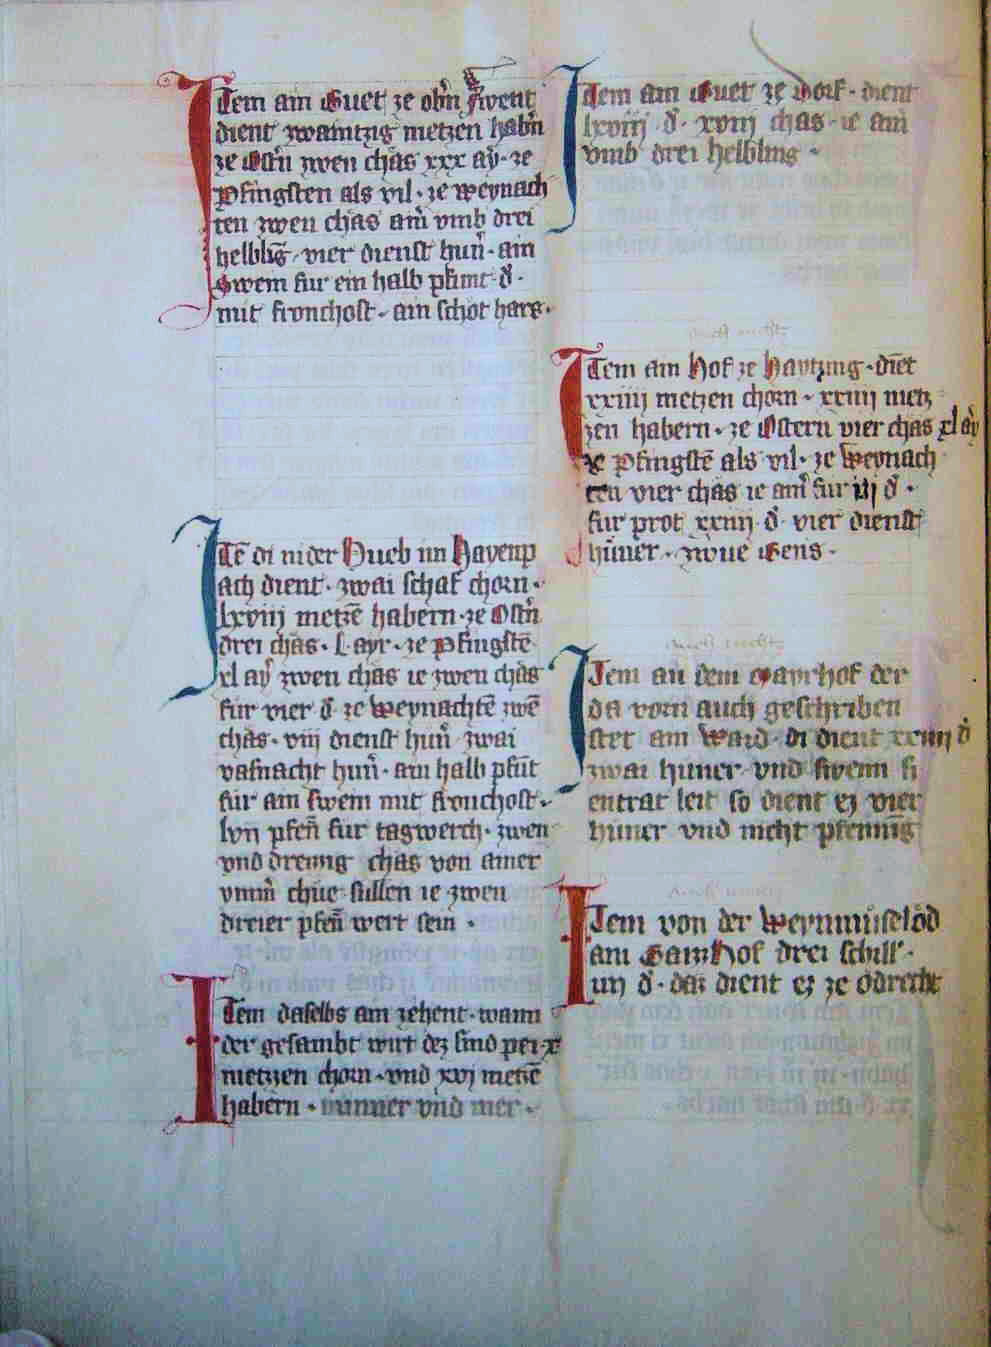 Item ain Guet ze obn̄ swent
dient zwaintzig metzen habn̄
ze Ostn̄ zwen chas xxx ay · ze
Pfingsten als vil · ze weynach
ten zwen chas ain̄ vmb drei
helblīg · vier dienst hun̄ · ain
Swein fur ein halb pfunt · d̄ ·
mit fronchost · ain schot hars ·
Itē di nider Hueb im Hayenp
ach dient · zwai schaf chorn ·
lxviij metzē habern · ze Ostn̄
drei chas · l · ayr · ze Pfingstē
xl ay zwen chas ie zwen chas
fur vier d̄ · ze weynachtē zwē
chas · viij dienst hun̄ zwai
vasnacht hun̄ · ain halb pfūt
fur ain swein mit fronchost ·
lvij pfen̄ fur tagwerch · zwen
vnd dreizzig chas von ainer
chue sullen ie zwen
dreier pfen̄ wert sein ·
Item daselbs ain zehent · wann
der gesambt wirt dez sind pei · x
metzen chorn · vnd xvj metzē
habern · minner vnd mer ·
Item ain Guet ze Dorf · dient
lxviij · d̄ · xviij chas · ie ain̄
vmb drei helbling ·
Item ain Hof ze Hautzing · diēt
xxiiij metzen chorn · xxiiij metz
zen habern · ze Ostern vier chas xl ay
ze Pfingstē als vil · ze Weynach
ten vier chas ie ain̄ fur iij d̄ ·
fur prot xxiiij · d̄ · vier dienst
huner · zwue Gens ·
Item an dem Mayrhof der
da vorn auch geschriben
stet am Waid · di dient xxiiij d̄
zwai huner · vnd swenn si
entrat leit so dient ez vier
huner vnd nicht pfennīg
Item von der
am Hof drei schill ·
iiij d̄ · daz dient ez ze